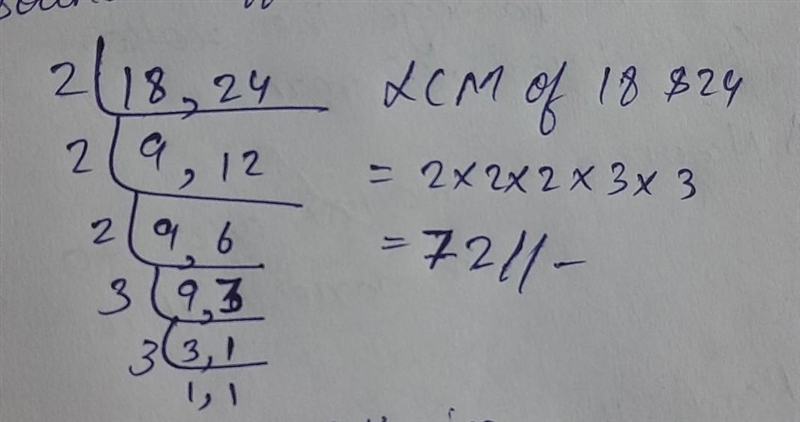 2 18, 24
2 9, 12
2 9, 6
3 9, 3
3 3, 1
1, 1
LCM of 18 & 24
= 2 × 2 × 2 × 3 × 3
= 72 // -